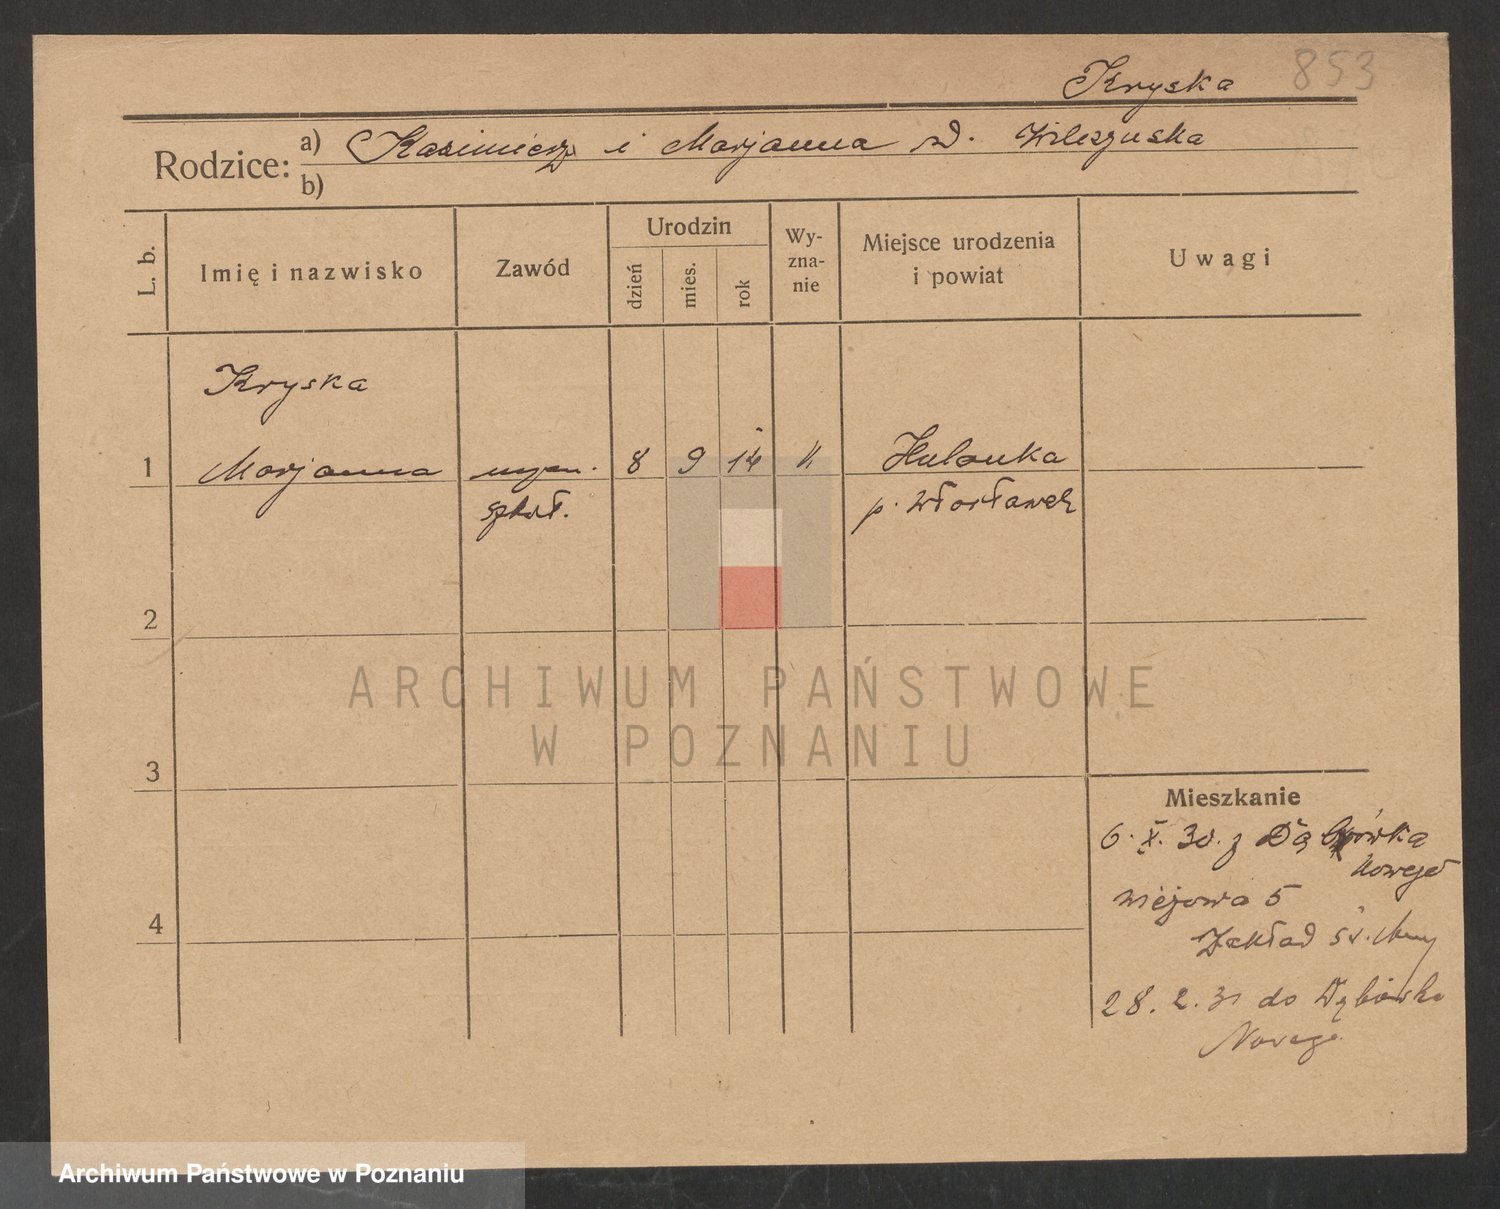 Kryska 853
Rodzice: a) Kazimierz i Marjanna d.
b)
L. b.
Imię i nazwisko
Zawód
Urodzin
dzień
mies.
rok
Wy-
zna-
nie
Miejsce urodzenia
i powiat
Uwagi
Kryska
1 Marjanna 8 9 14 k
szkoł. p. Włocławek
2
3
4
Mieszkanie
6. X. 30. z Dąbrówka
Nowego
5
Zakład św. Anny
28. 2. 31 do Dąbrówka
Nowego
ARCHIWUM PAŃSTWOWE
W POZNANIU
Archiwum Państwowe w Poznaniu